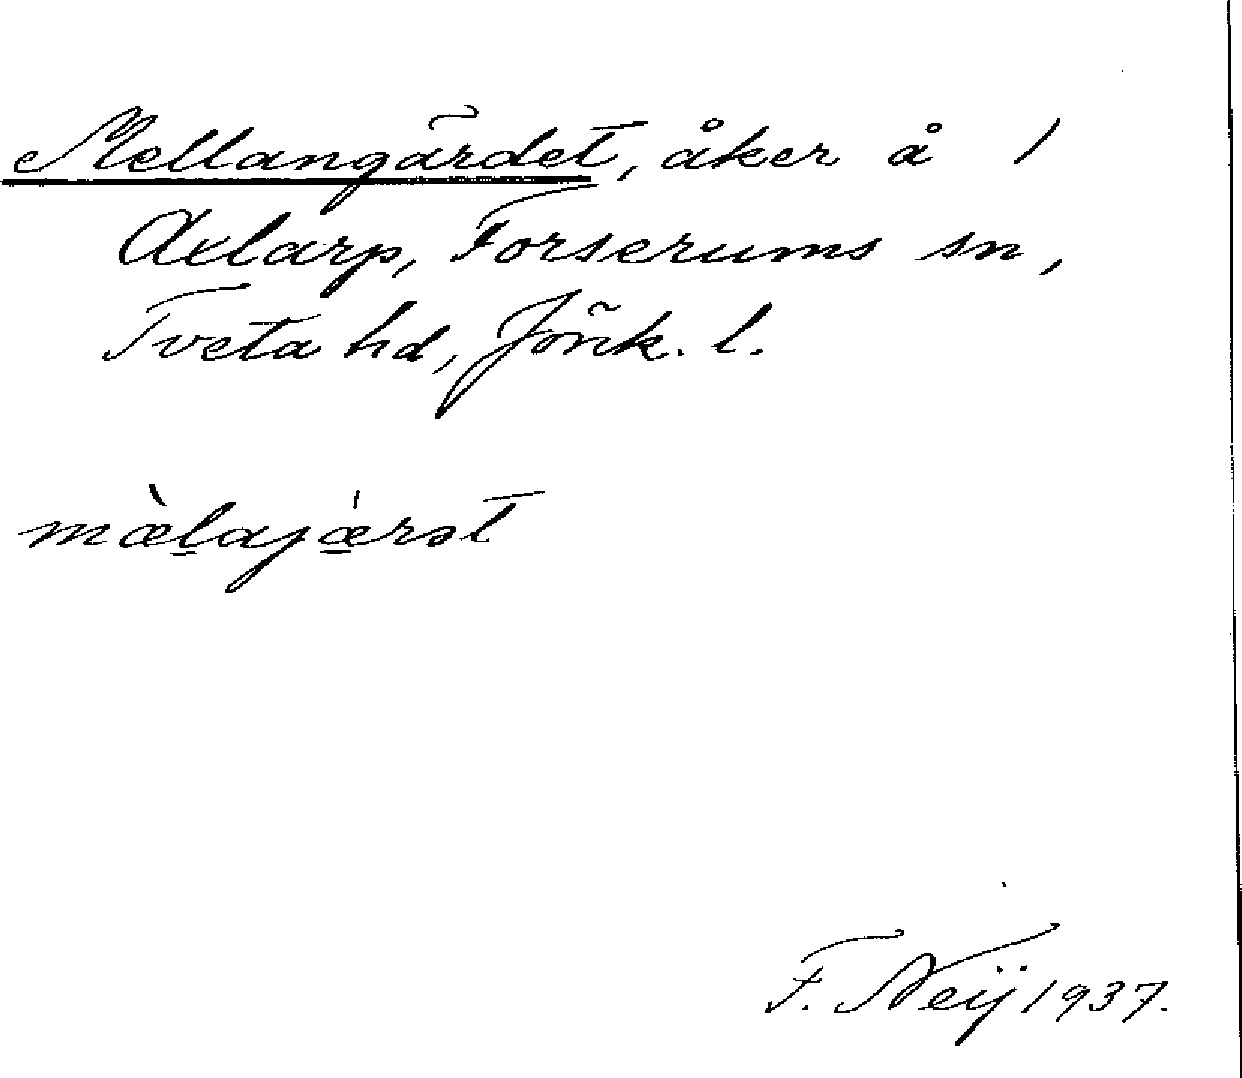 Mellangärdet, åker å 1
Axlarp, Forserums sn,
Tveta hd, Jönk. l.
mæ̀l̠ajǽ̠rət
F. Neij 1937.